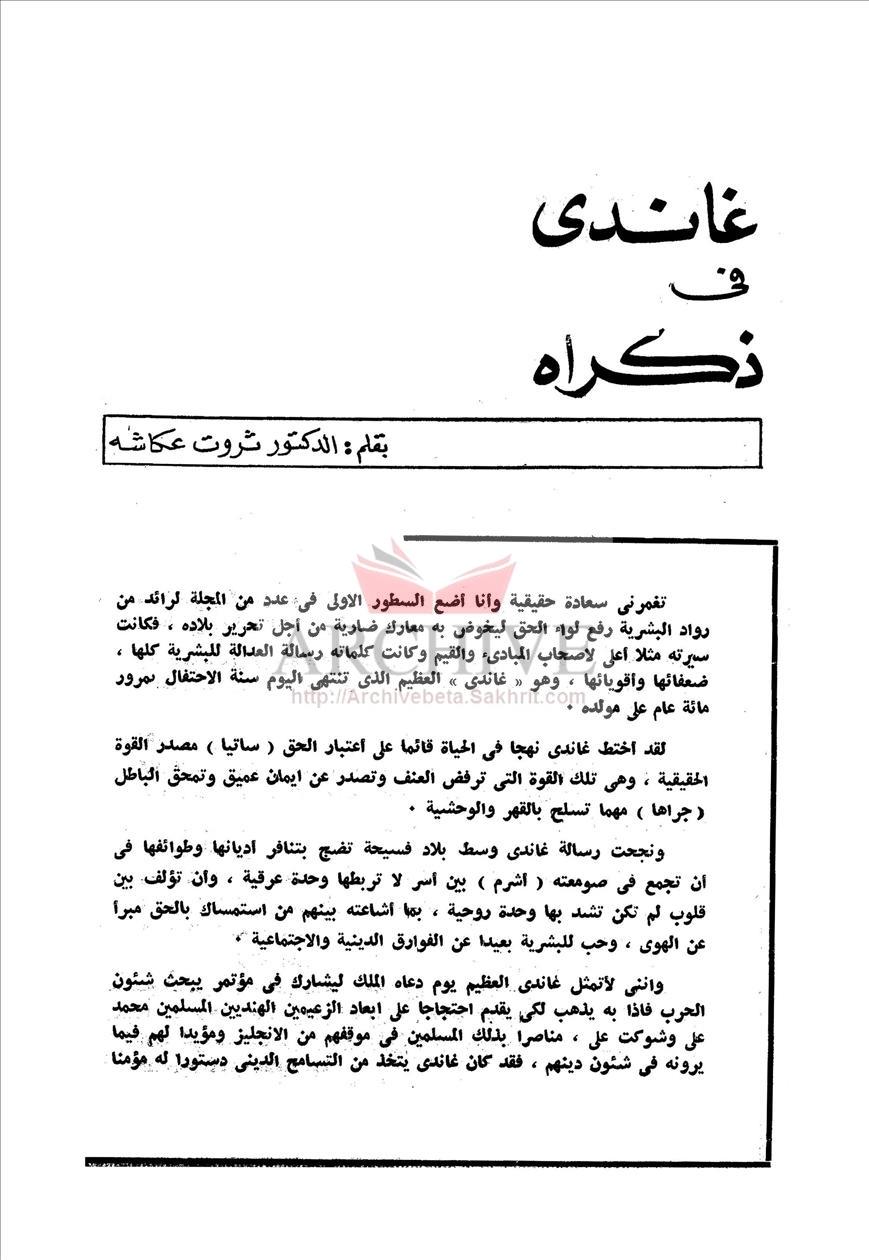 غاندى
فى
ذكراه
بقلم : الدكتور ثروت عكاشه
تغمرنى سعادة حقيقية وأنا أضع السطور الاولى فى عدد من المجلة لرائد من
رواد البشرية رفع لواء الحق ليخوض به معارك ضارية من أجل تحرير بلاده ، فكانت
سيرته مثلا أعلى لاصحاب المبادىء والقيم وكانت كلماته رسالة العدالة للبشرية كلها ،
ضعفائها وأقويائها ، وهو « غاندى » العظيم الذى تنتهى اليوم سنة الاحتفال بمرور
مائة عام على مولده .
لقد أختط غاندى نهجا فى الحياة قائما على أعتبار الحق ( ساتيا ) مصدر القوة
الحقيقية ، وهى تلك القوة التى ترفض العنف وتصدر عن ايمان عميق وتمحق الباطل
( جراها ) مهما تسلح بالقهر والوحشية .
ونجحت رسالة غاندى وسط بلاد فسيحة تضج بتنافر أديانها وطوائفها فى
أن تجمع فى صومعته ( أشرم ) بين أسر لا تربطها وحدة عرقية ، وأن تؤلف بين
قلوب لم تكن تشد بها وحدة روحية ، بما أشاعته بينهم من استمساك بالحق مبرأ
عن الهوى ، وحب للبشرية بعيدا عن الفوارق الدينية والاجتماعية .
واننى لأتمثل غاندى العظيم يوم دعاه الملك ليشارك فى مؤتمر يبحث شئون
الحرب فاذا به يذهب لكى يقدم احتجاجا على ابعاد الزعيمين الهنديين المسلمين محمد
على وشوكت على ، مناصرا بذلك المسلمين فى موقفهم من الانجليز ومؤيدا لهم فيما
يرونه فى شئون دينهم ، فقد كان غاندى يتخذ من التسامح الدينى دستورا له مؤمنا
ARCHIVE
http://Archivebeta.Sakhrit.com